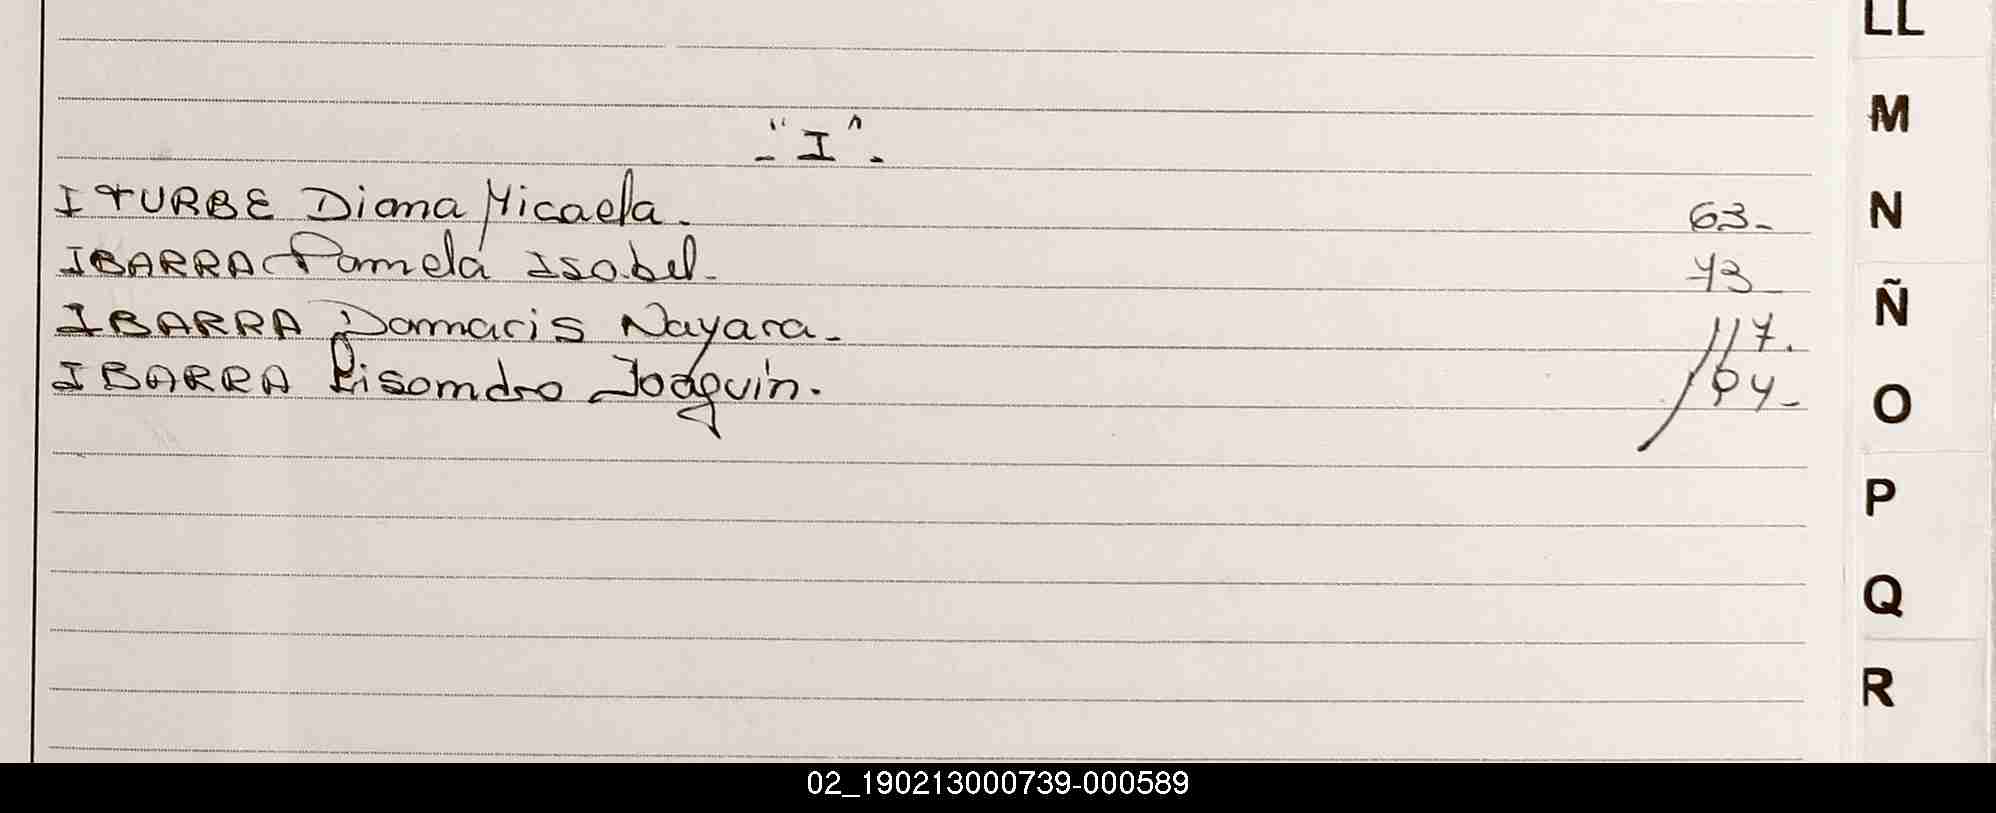 LL
M
N
Ñ
O
P
Q
R
-"I".
ITURBE Diana Micaela. 63-
IBARRA Pamela Isabel- 73-
IBARRA Damaris Nayara- 117.
IBARRA Lisandro Joaquin.
02_190213000739-000589